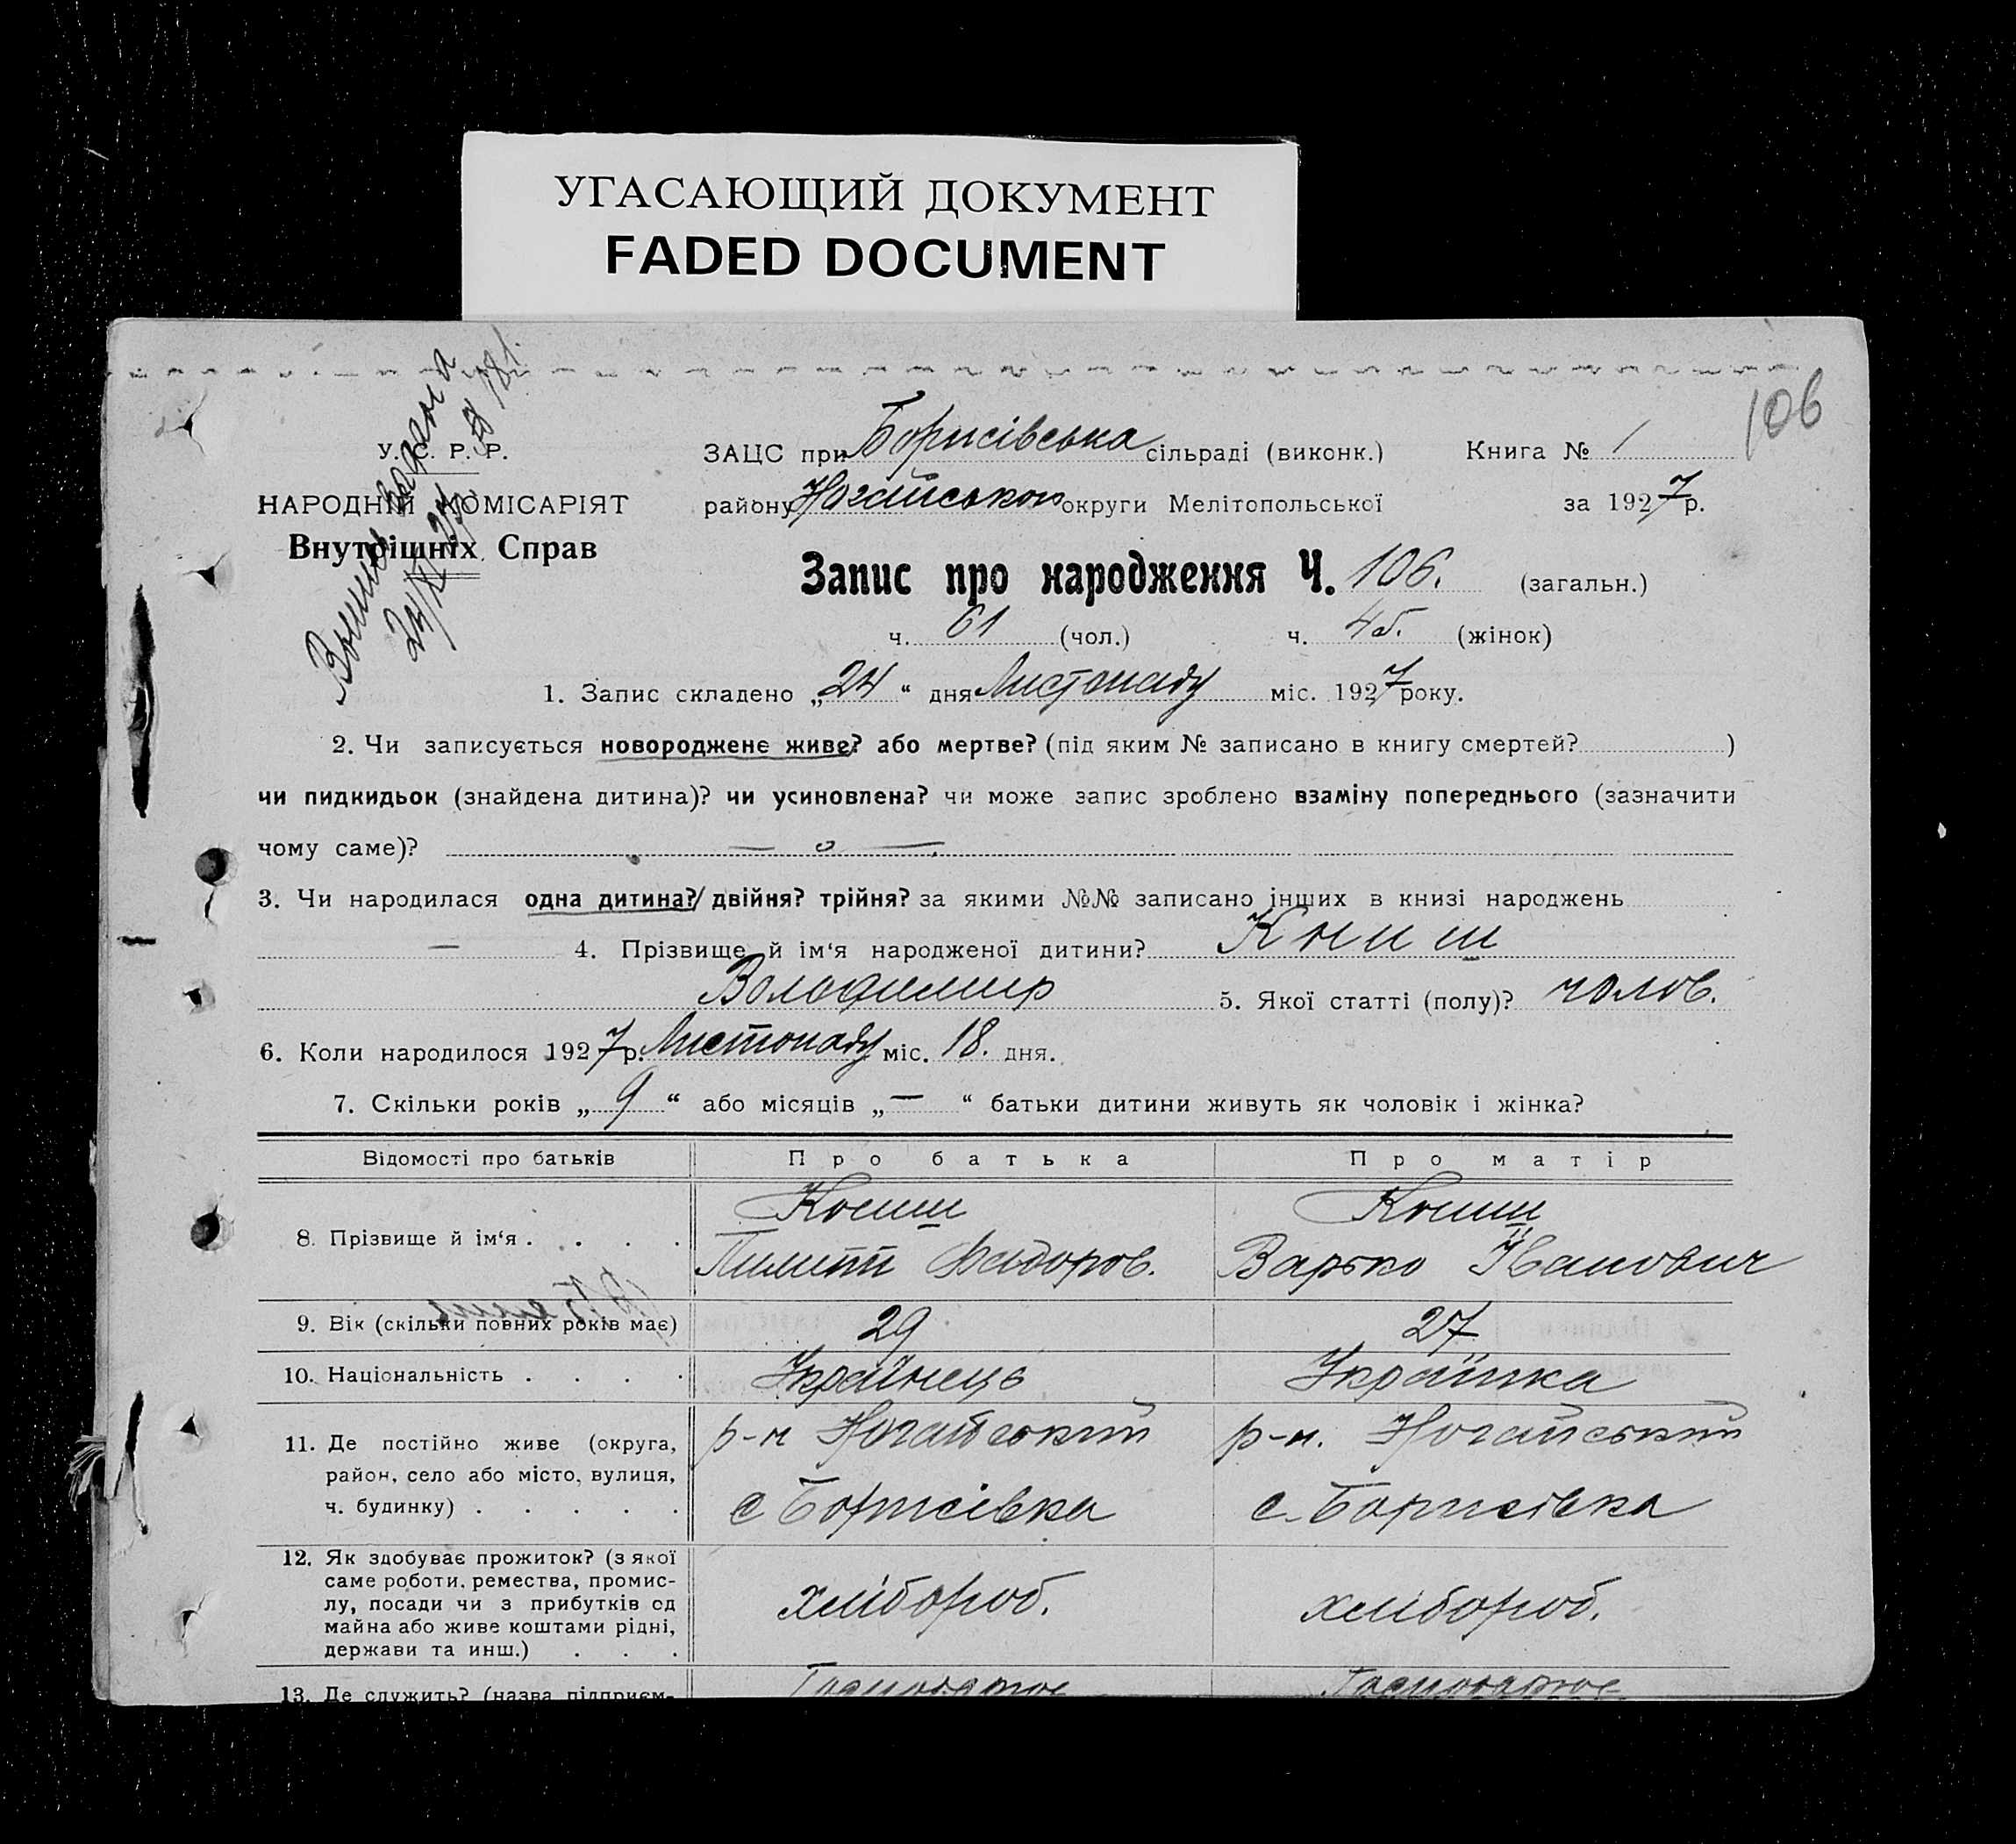 УГАСАЮЩИЙ ДОКУМЕНТ
FADED DOCUMENT
106
У. С. Р. Р.
НАРОДНІЙ КОМІСАРІЯТ
Внутрішніх Справ
ЗАЦС при Борисівська сільраді (виконк.) Книга № 1
району Ногайського округи Мелітопольської за 1927 р.
Запис про народження Ч. 106. (загальн.)
ч. 61 (чол.) ч. 45. (жінок)
1. Запис складено „24“ дня Листопаду міс. 1927 року.
2. Чи записується новороджене живе? або мертве? (під яким № записано в книгу смертей? )
чи пидкидьок (знайдена дитина)? чи усиновлена? чи може запис зроблено взаміну попереднього (зазначити
чому саме)? — о —
3. Чи народилася одна дитина?/ двійня? трійня? за якими №№ записано інших в книзі народжень
— 4. Прізвище й ім‘я народженої дитини? Книш
Володимир 5. Якої статті (полу)? чолов.
6. Коли народилося 1927 р. Листопаду міс. 18. дня.
7. Скільки років „9“ або місяців „—“ батьки дитини живуть як чоловік і жінка?
Відомості про батьків Про батька Про матір
8. Прізвище й ім‘я . . . . . Книш Книш
Пилипп Федоров. Варько Іванович
9. Вік (скільки повних років має) 29 27
10. Національність . . . . Українець Українка
11. Де постійно живе (округа, район, село або місто, вулиця, ч. будинку) . . . . . р-н Ногайський р-н. Ногайський
с Борисівка с. Борисівка
12. Як здобуває прожиток? (з якої
саме роботи, ремества, промис-
лу, посади чи з прибутків од
майна або живе коштами рідні,
держави та инш.) . . . хлібороб. хлібороб.
13. Де служить? (назва підприєм-